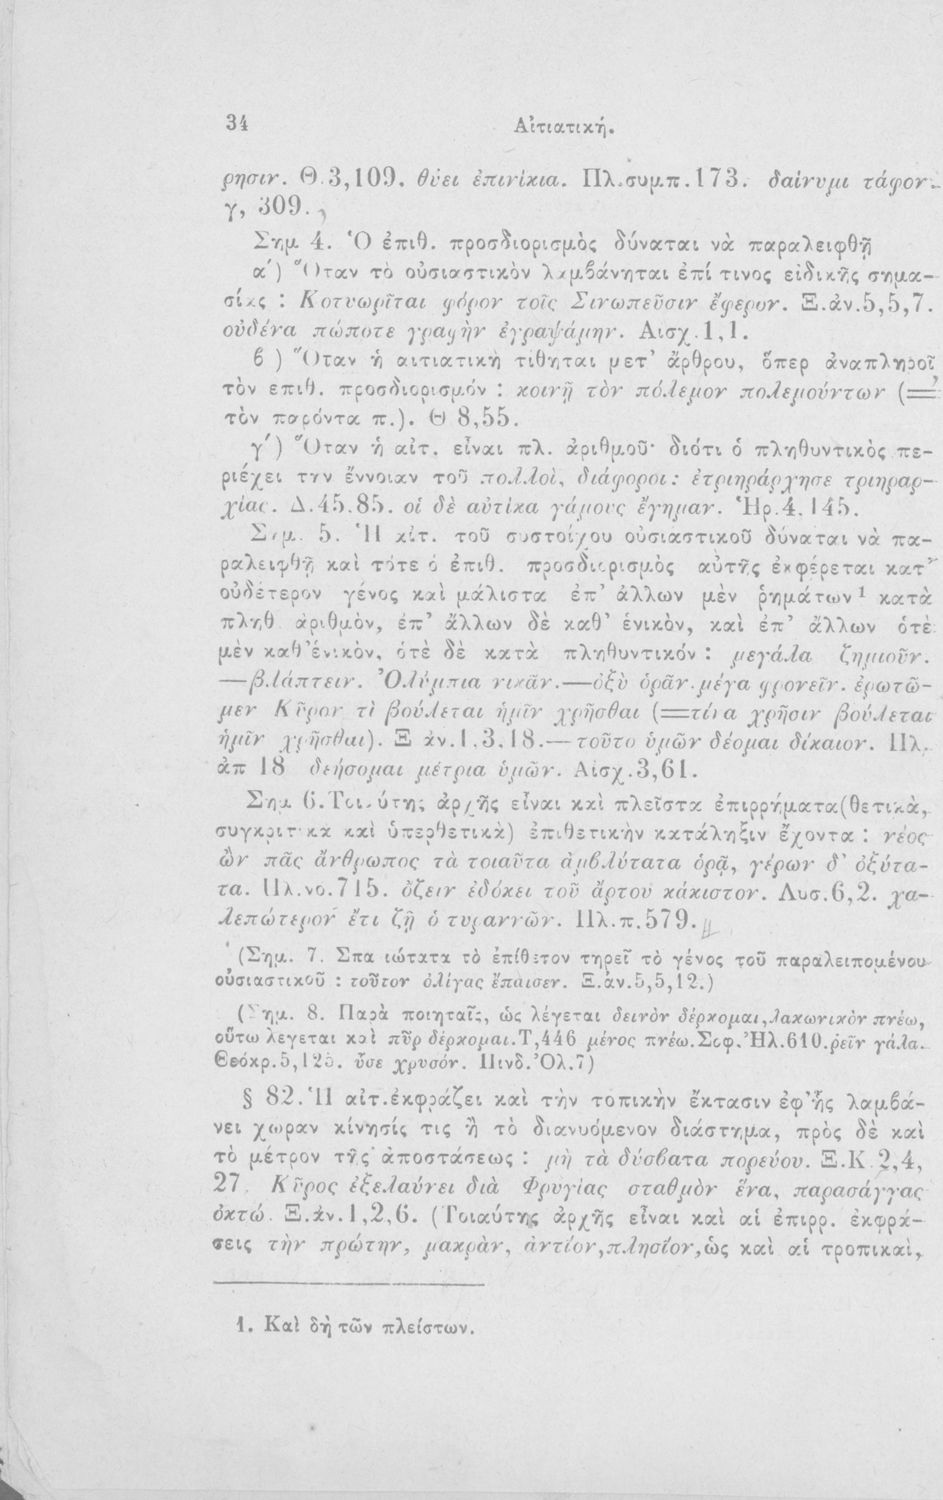 34 Αἰτιατική.
ρησιν. Θ.3,109. θύει ἐπινίκια. Πλ.συμπ.173. δαίνυμι τάφον.
γ, 309.
Σημ 4. Ὁ ἐπιθ. προσδιορισμὸς δύναται νὰ παραλειφθῇ
α') Ὅταν τὸ οὐσιαστικὸν λαμβάνηται ἐπί τινος εἰδικῆς σημα-
σίας : Κοτυωρῖται φόρον τοῖς Σινωπεῦσιν ἔφερον. Ξ.ἀν.5,5,7.
οὐδένα πώποτε γραφὴν ἐγραψάμην. Αισχ.1,1.
β ) Ὅταν ἡ αιτιατικὴ τίθηται μετ' ἄρθρου, ὅπερ ἀναπληροῖ
τὸν επιθ. προσδιορισμόν : κοινῇ τὸν πόλεμον πολεμούντων (=
τὸν παρόντα π.). Θ 8,55.
γ') Ὅταν ἡ αἰτ. εἶναι πλ. ἀριθμοῦ· διότι ὁ πληθυντικὸς πε-
ριέχει την ἔννοιαν τοῦ πολλοὶ, διάφοροι: ἐτριηράρχησε τριηραρ-
χίας. Δ.45.85. οἱ δὲ αὐτίκα γάμους ἔγημαν. Ἡρ.4.145.
Σημ. 5. Ἡ αἰτ. τοῦ συστοίχου οὐσιαστικοῦ δύναται νὰ πα-
ραλειφθῇ καὶ τότε ὁ ἐπιθ. προσδιορισμὸς αὐτῆς ἐκφέρεται κατ'
οὐδέτερον γένος καὶ μάλιστα ἐπ' ἄλλων μὲν ῥημάτων¹ κατὰ
πληθ. ἀριθμὸν, ἐπ' ἄλλων δὲ καθ' ἑνικὸν, καὶ ἐπ' ἄλλων ὁτὲ
μὲν καθ'ἑνικὸν, ὁτὲ δὲ κατὰ πληθυντικόν : μεγάλα ζημιοῦν.
—βλάπτειν. Ὀλύμπια νικᾶν.—ὀξὺ ὁρᾶν.μέγα φρονεῖν. ἐρωτῶ-
μεν Κῦρον τὶ βούλεται ἡμῖν χρῆσθαι (=τίνα χρῆσιν βούλεται
ἡμῖν χρῆσθαι). Ξ ἀν.1.3.18.—τοῦτο ὑμῶν δέομαι δίκαιον. Πλ.
ἀπ 18 δεήσομαι μέτρια ὑμῶν. Αἰσχ.3,61.
Σημ 6.Τοιαύτης ἀρχῆς εἶναι καὶ πλεῖστα ἐπιρρήματα(θετικὰ,
συγκριτικα καὶ ὑπερθετικὰ) ἐπιθετικὴν κατάληξιν ἔχοντα : νέος
ὢν πᾶς ἄνθρωπος τὰ τοιαῦτα ἀμβλύτατα ὁρᾷ, γέρων δ' ὀξύτα-
τα. Πλ.νο.715. ὄζειν ἐδόκει τοῦ ἄρτου κάκιστον. Λυσ.6,2. χα-
λεπώτερον ἔτι ζῇ ὁ τυραννῶν. Πλ.π.579.
(Σημ. 7. Σπανιώτατα τὸ ἐπίθετον τηρεῖ τὸ γένος τοῦ παραλειπομένου
οὐσιαστικοῦ : τοῦτον ὀλίγας ἔπαισεν. Ξ.ἀν.5,5,12.)
(Σημ. 8. Παρὰ ποιηταῖς, ὡς λέγεται δεινὸν δέρκομαι,λακωνικὸν πνέω,
οὕτω λεγεται καὶ πῦρ δέρκομαι.Τ,446 μένος πνέω.Σοφ.Ἠλ.610.ῥεῖν γάλα.
Θεόκρ.5,125. ὗσε χρυσόν. Πινδ.Ὀλ.7)
§ 82.Ἡ αἰτ.ἐκφράζει καὶ τὴν τοπικὴν ἔκτασιν ἐφ'ἧς λαμβά-
νει χωραν κίνησίς τις ἢ τὸ διανυόμενον διάστημα, πρὸς δὲ καὶ
τὸ μέτρον τῆς ἀποστάσεως : μὴ τὰ δύσβατα πορεύου. Ξ.Κ.2,4,
27 Κῦρος ἐξελαύνει διὰ Φρυγίας σταθμὸν ἕνα, παρασάγγας
ὀκτώ. Ξ.ἀν.1,2,6. (Τοιαύτης ἀρχῆς εἶναι καὶ αἱ ἐπιρρ. ἐκφρά-
σεις τὴν πρώτην, μακρὰν, ἀντίον,πλησίον,ὡς καὶ αἱ τροπικαὶ,
1. Καὶ δὴ τῶν πλείστων.